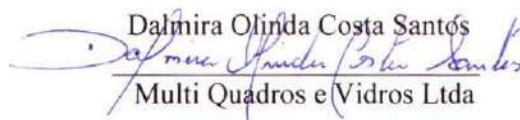 Dalmira Olinda Costa Santos
Dalmira Olinda Costa Santos
Multi Quadros e Vidros Ltda